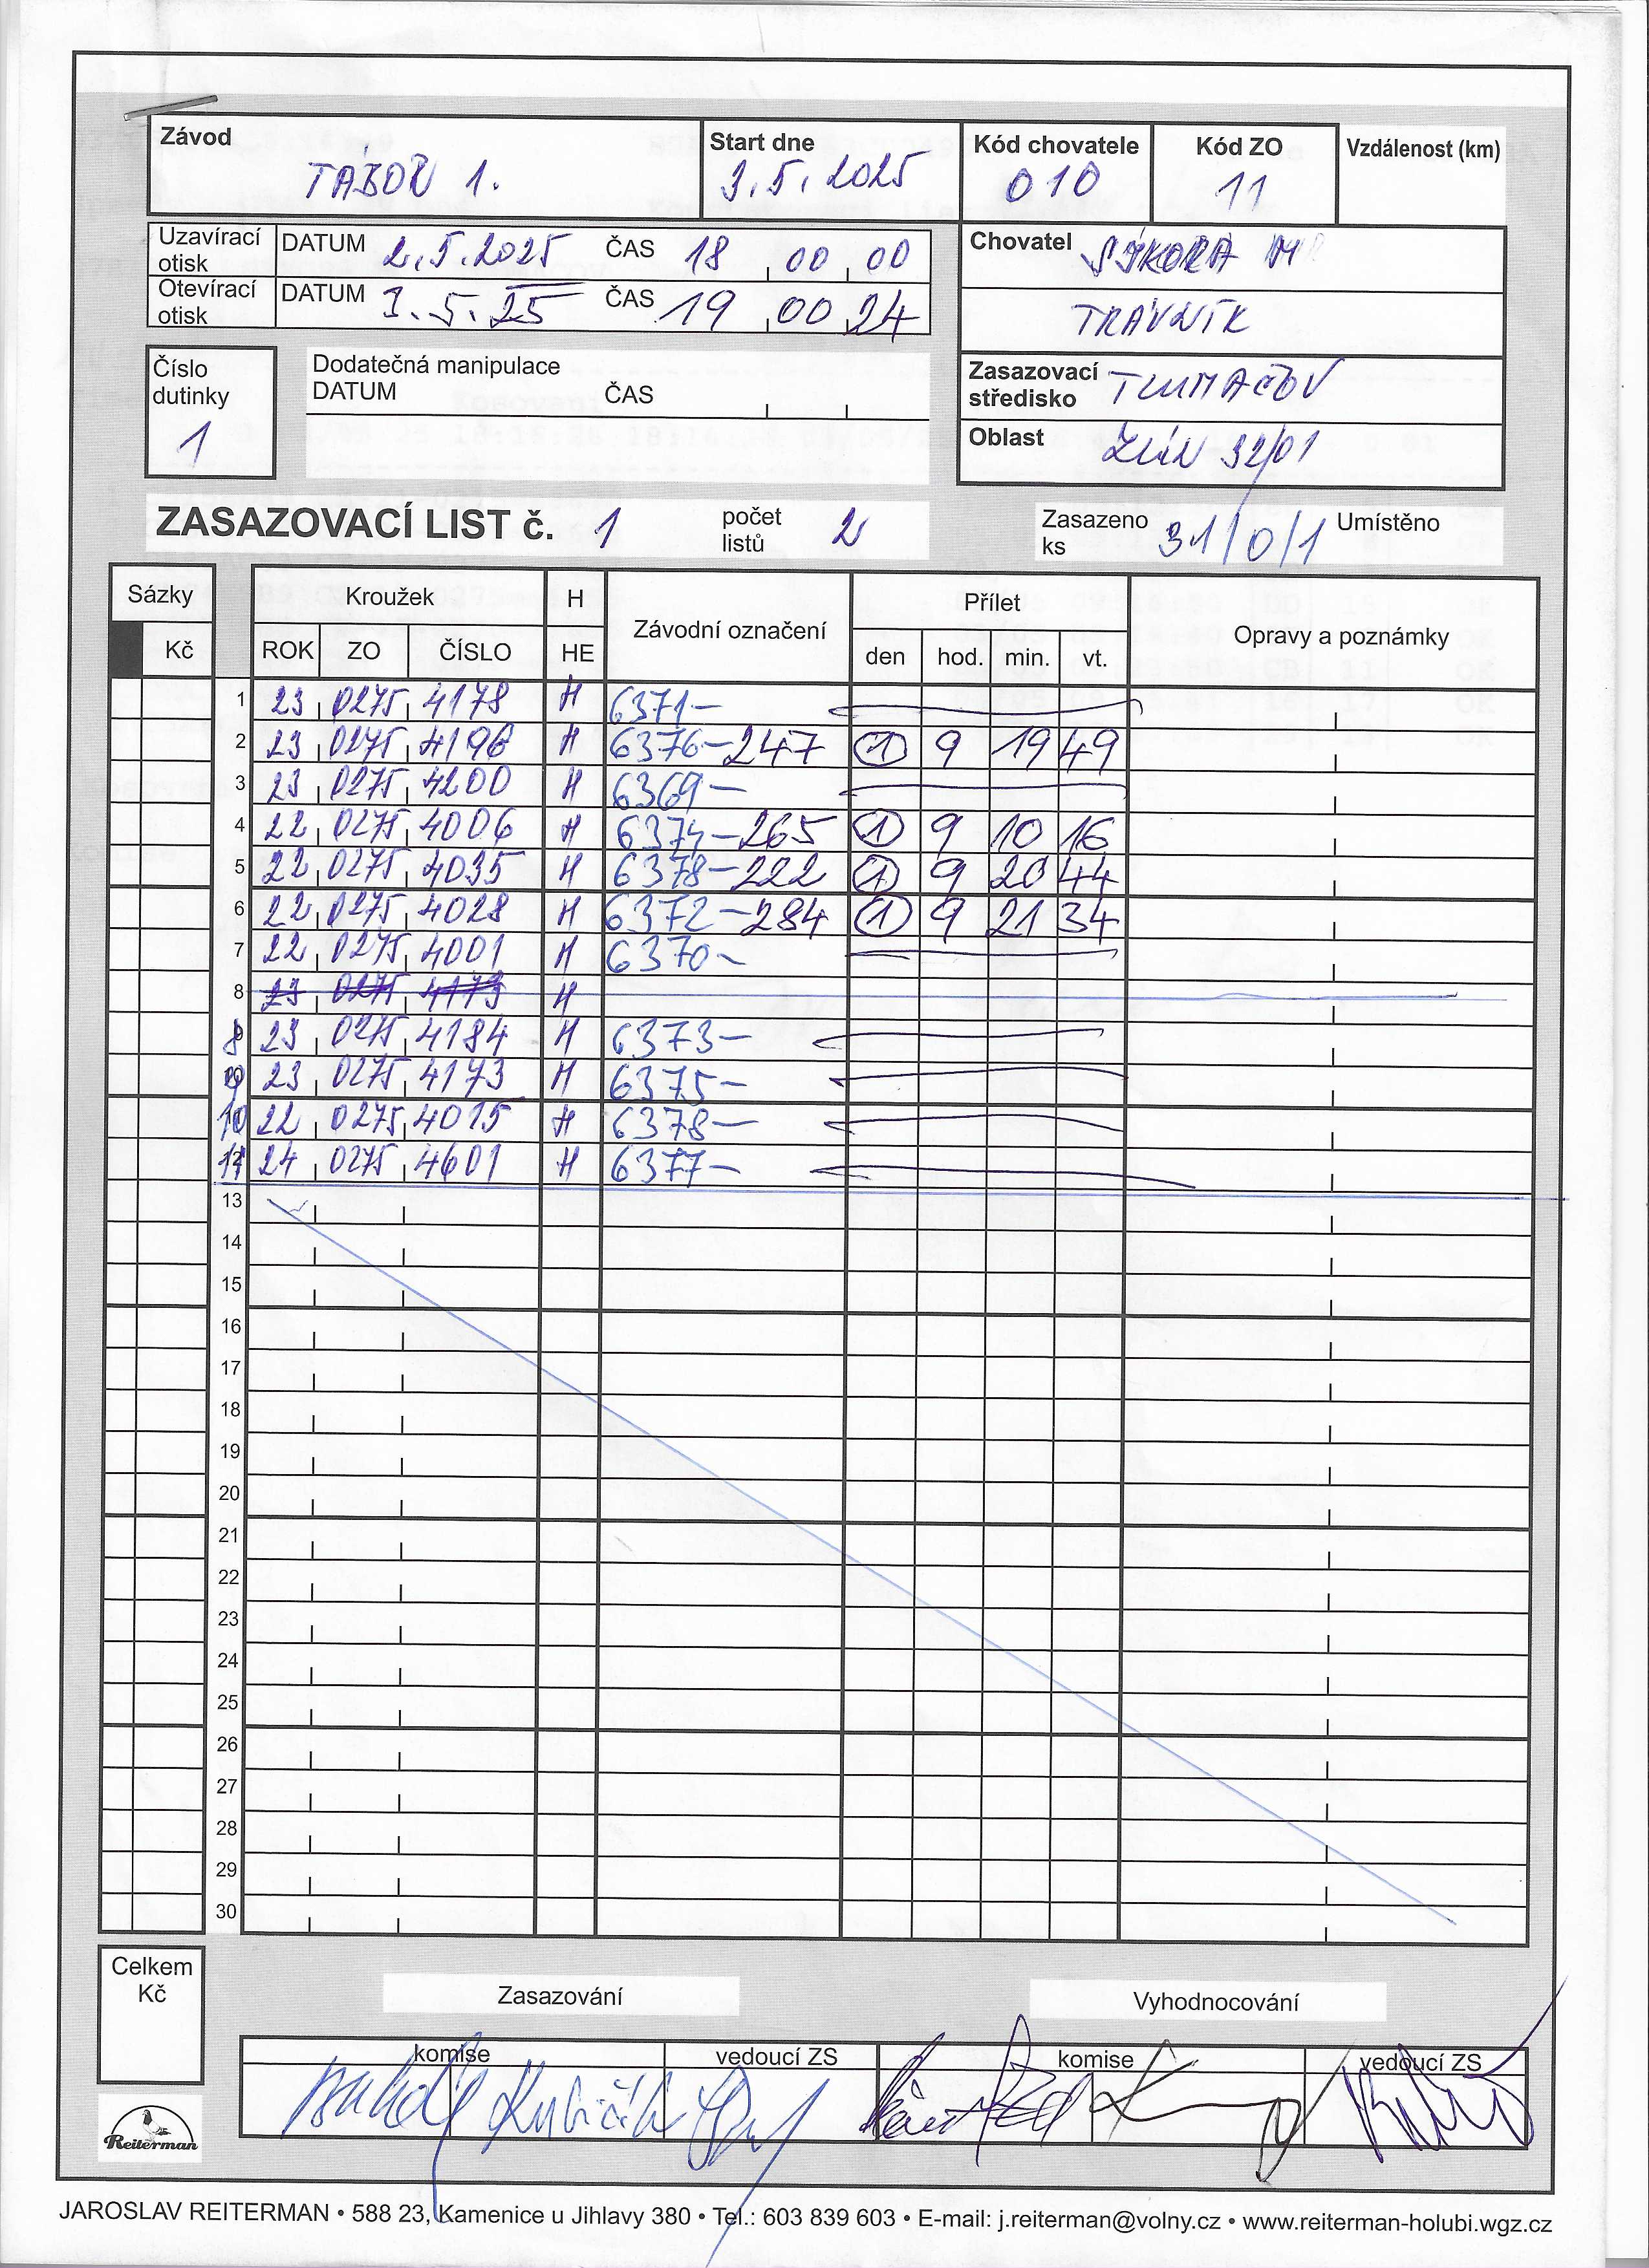 Závod Start dne Kód chovatele Kód ZO Vzdálenost (km)
TÁBOR 1. 3.5.2025 010 11
Uzavírací otisk DATUM 2.5.2025 ČAS 18 00 00
Otevírací otisk DATUM 3.5.25 ČAS 19 00 24
Chovatel SÝKORA M
TRÁVNÍK
Číslo dutinky 1
Dodatečná manipulace
DATUM ČAS
Zasazovací středisko TLUMAČOV
Oblast ZLÍN 32/01
ZASAZOVACÍ LIST č. 1 počet listů 2 Zasazeno ks 31/0/1 Umístěno
Sázky Kroužek H Závodní označení Přílet Opravy a poznámky
Kč ROK ZO ČÍSLO HE den hod. min. vt.
1 23 0275 4178 H 6371-
2 23 0275 4196 H 6376-247 1 9 19 49
3 23 0275 4200 H 6369-
4 22 0275 4006 H 6374-265 1 9 10 16
5 22 0275 4035 H 6378-222 1 9 20 44
6 22 0275 4028 H 6372-284 1 9 21 34
7 22 0275 4001 H 6370-
8 23 0275 4173 H
8 23 0275 4184 H 6373-
9 23 0275 4173 H 6375-
10 22 0275 4015 H 6378-
11 24 0275 4601 H 6377-
13
14
15
16
17
18
19
20
21
22
23
24
25
26
27
28
29
30
Celkem Kč
Zasazování Vyhodnocování
komise vedoucí ZS komise vedoucí ZS
Kubičík
Reiterman
JAROSLAV REITERMAN • 588 23, Kamenice u Jihlavy 380 • Tel.: 603 839 603 • E-mail: j.reiterman@volny.cz • www.reiterman-holubi.wgz.cz